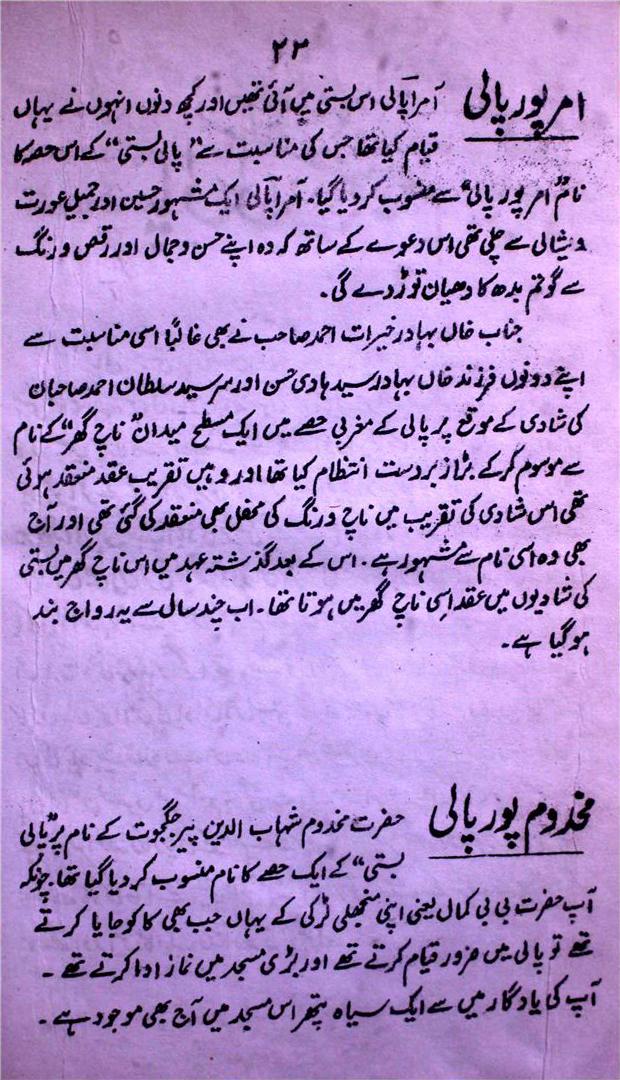 ۲۳
امر پور پالی
آمرا پالی اس بستی میں آئی تھیں اور کچھ دنوں انہوں نے یہاں
قیام کیا تھا جس کی مناسبت سے "پالی بستی" کے اس حصہ کا
نام "امر پور پالی" سے منسوب کر دیا گیا۔ آمرا پالی ایک مشہور حسین اور جمیل عورت
ویشالی سے چلی تھی اس دعوے کے ساتھ کہ وہ اپنے حسن و جمال اور رقص و رنگ
سے گوتم بدھ کا دھیان توڑ دے گی۔
جناب خاں بہادر خیرات احمد صاحب نے بھی غالباً اسی مناسبت سے
اپنے دونوں فرزند خاں بہادر سید ہادی حسن اور سر سید سلطان احمد صاحبان
کی شادی کے موقع پر پالی کے مغربی حصے میں ایک مسطح میدان "ناچ گھر" کے نام
سے موسوم کر کے بڑا زبردست انتظام کیا تھا اور وہیں تقریب عقد منعقد ہوئی
تھی اس شادی کی تقریب میں ناچ و رنگ کی محفل بھی منعقد کی گئی تھی اور آج
بھی وہ اسی نام سے مشہور ہے۔ اس کے بعد گذشتہ عہد میں اس ناچ گھر میں بستی
کی شادیوں میں عقد اسی ناچ گھر میں ہوتا تھا۔ اب چند سال سے یہ رواج بند
ہو گیا ہے۔
مخدوم پور پالی
حضرت مخدوم شہاب الدین پیر جگجوت کے نام پر "پالی
بستی" کے ایک حصے کا نام منسوب کر دیا گیا تھا چونکہ
آپ حضرت بی بی کمال یعنی اپنی منجھلی لڑکی کے یہاں جب بھی کاکو جایا کرتے
تھے تو پالی میں ضرور قیام کرتے تھے اور بڑی مسجد میں نماز ادا کرتے تھے۔
آپ کی یادگار میں سے ایک سیاہ پتھر اس مسجد میں آج بھی موجود ہے۔